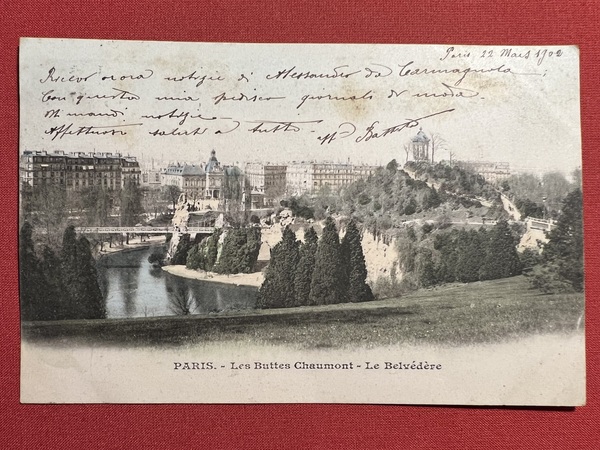 Paris 22 Mars 1902
Ricevo ora notizie di Alessandro da Carmagnola
Con questa mia spedisco giornali di moda.
mandi notizie
Affettuosi saluti a tutti
PARIS. - Les Buttes Chaumont - Le Belvédère